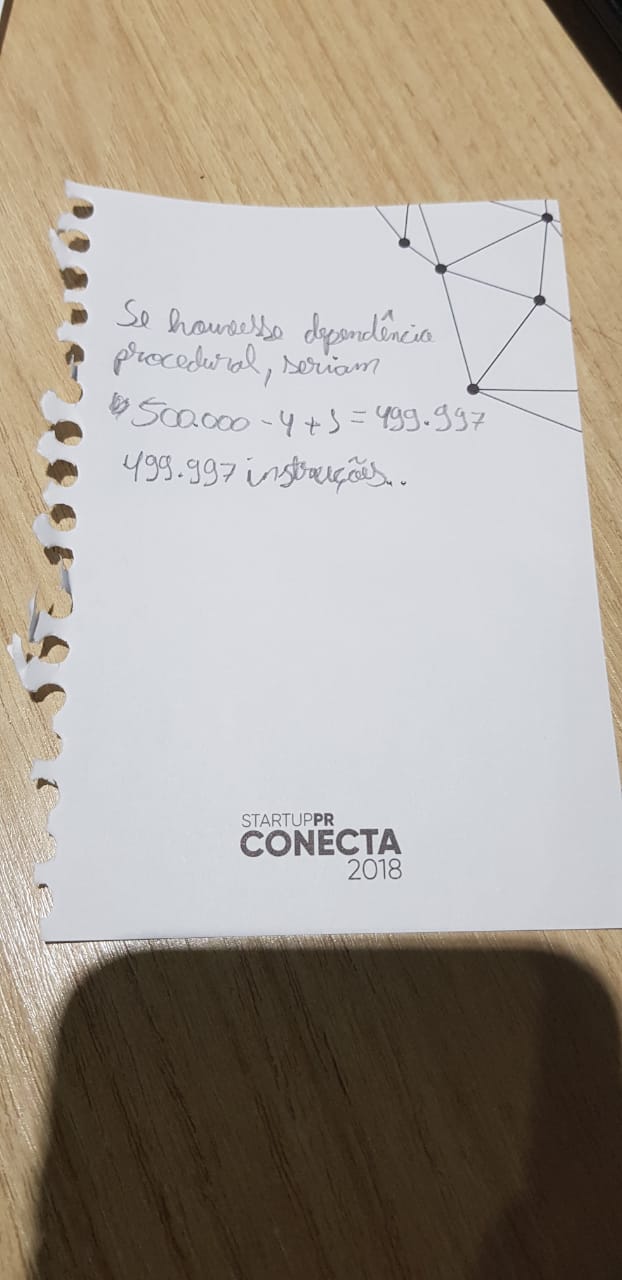 Se houvesse dependência
procedural, seriam
500.000 - 4 + 1 = 499.997
499.997 instruções..
STARTUPPR
CONECTA
2018